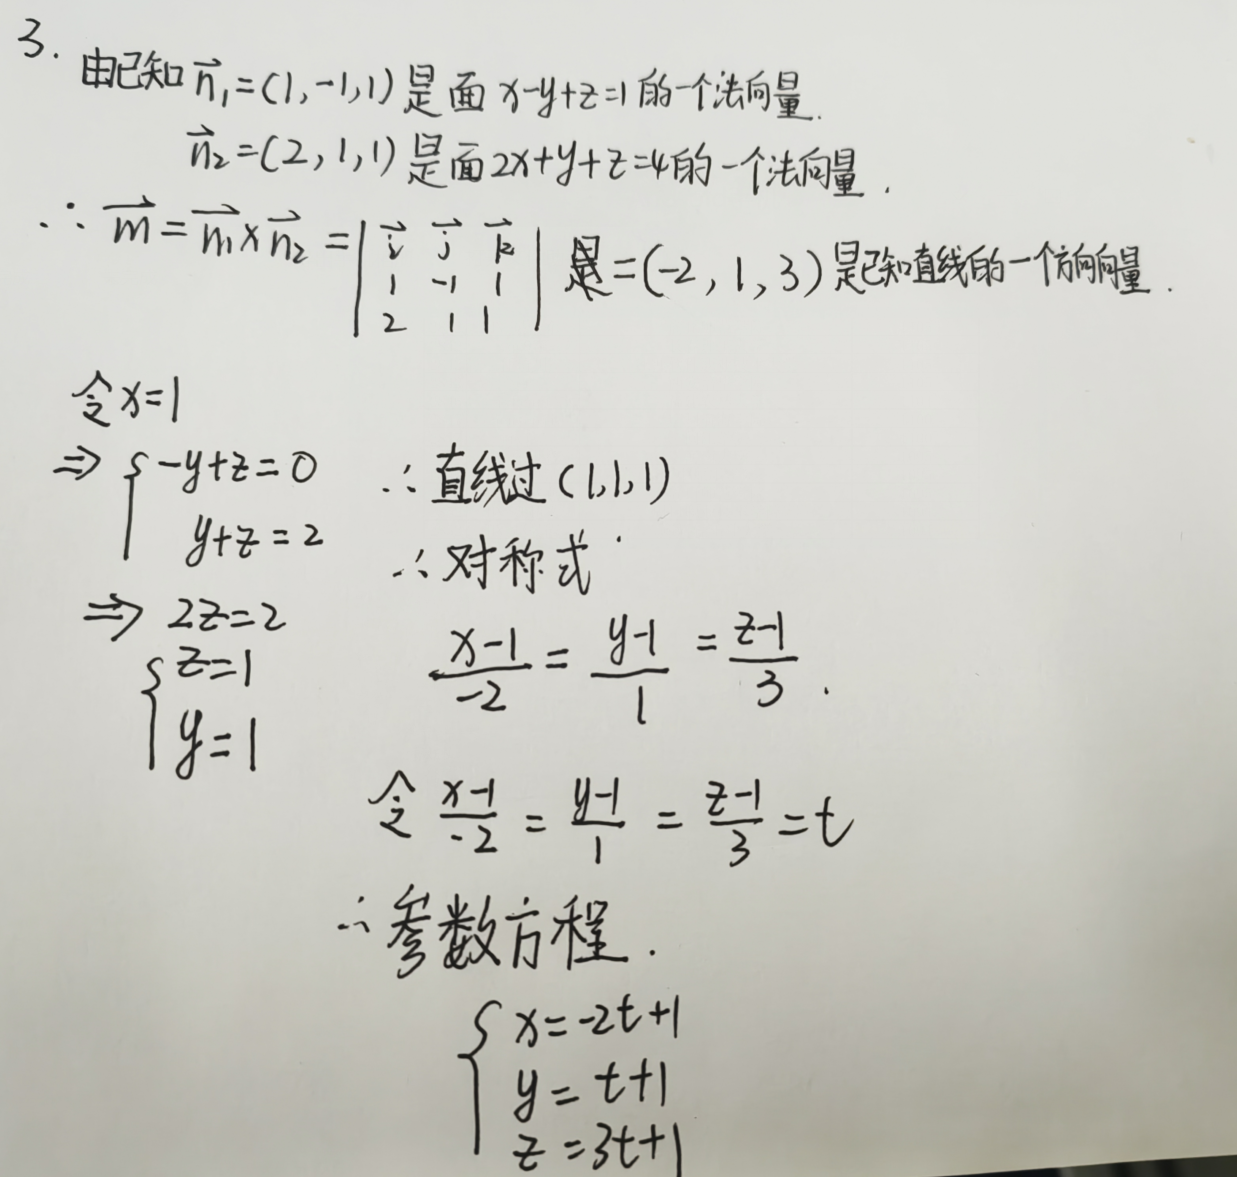 3. 由已知 n⃗₁=(1,-1,1)是面 x-y+z=1的一个法向量.
n⃗₂=(2,1,1)是面2x+y+z=4的一个法向量.
∴ m⃗=n⃗₁×n⃗₂=| i⃗ j⃗ k⃗ | =(-2,1,3)是已知直线的一个方向向量.
1 -1 1
2 1 1
令x=1
⇒ { -y+z=0
y+z=2
⇒ 2z=2
{ z=1
y=1
∴直线过(1,1,1)
∴对称式
(x-1)/(-2) = (y-1)/1 = (z-1)/3.
令 (x-1)/(-2) = (y-1)/1 = (z-1)/3 = t
∴参数方程.
{ x=-2t+1
y=t+1
z=3t+1